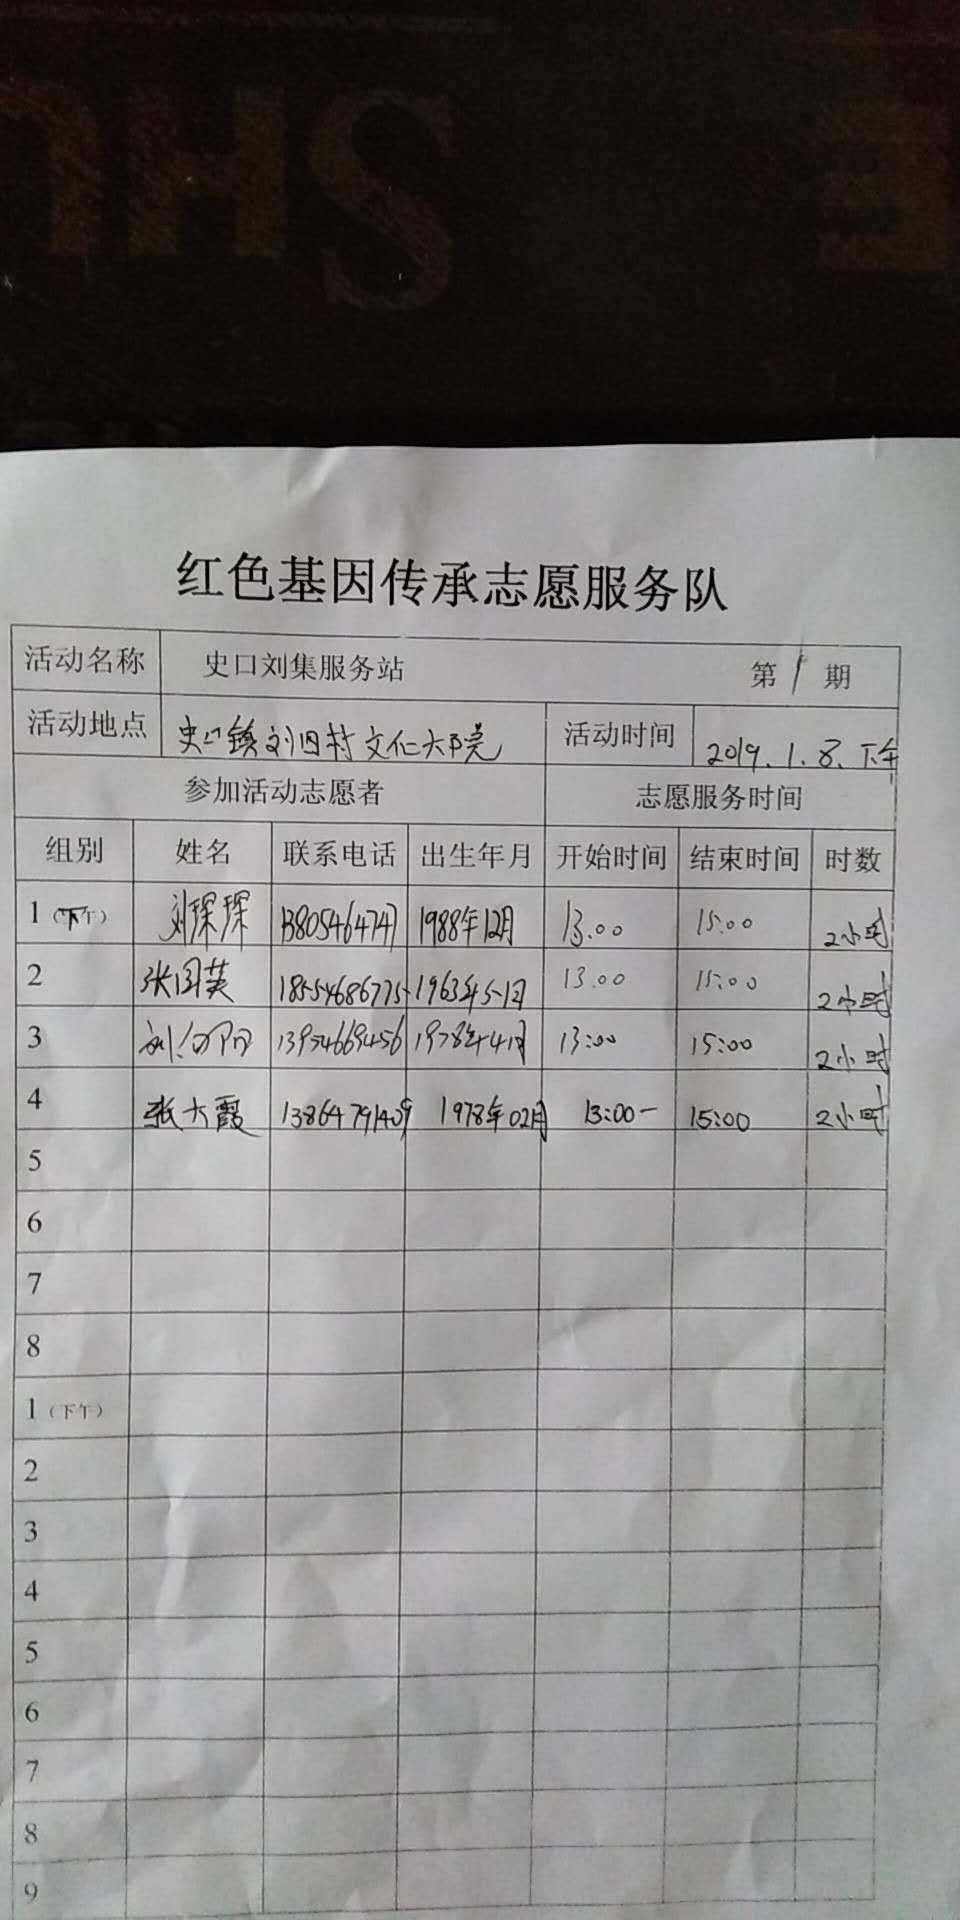 SHU
E
红色基因传承志愿服务队
活动名称 史口刘集服务站 第1期
活动地点 史口镇刘田村文化大院 活动时间 2019.1.8.下午
参加活动志愿者 志愿服务时间
组别 姓名 联系电话 出生年月 开始时间 结束时间 时数
1(下午) 刘琛琛 13805464747 1988年12月 13.00 15:00 2小时
2 张国英 18554686775 1963年5月 13.00 15:00 2小时
3 刘 13954669456 1978年4月 13:00 15:00 2小时
4 张大霞 13864791409 1978年02月 13:00- 15:00 2小时
5
6
7
8
1(下午)
2
3
4
5
6
7
8
9